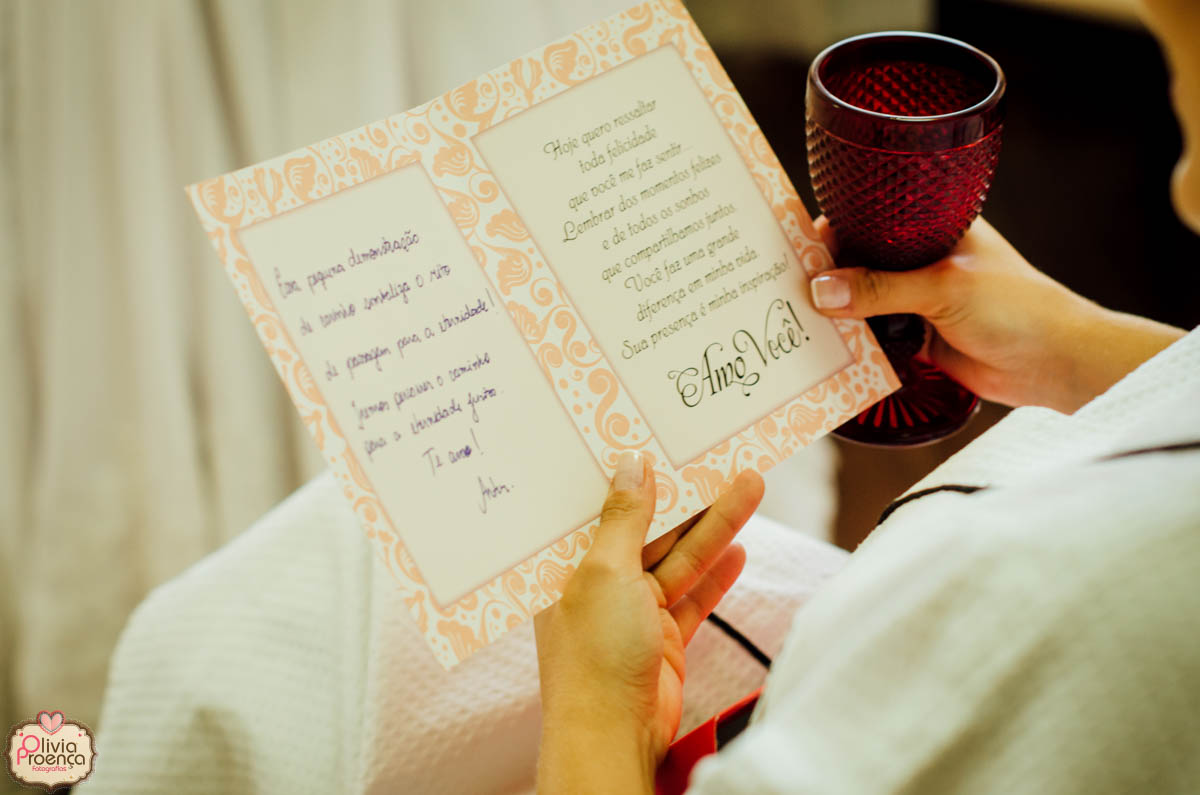 Essa pequena demonstração
de carinho simboliza o rito
de passagem para a eternidade!
Iremos percorrer o caminho
para a eternidade juntos.
Te amo!
Hoje quero ressaltar
toda felicidade
que você me faz sentir...
Lembrar dos momentos felizes
e de todos os sonhos
que compartilhamos juntos.
Você faz uma grande
diferença em minha vida.
Sua presença é minha inspiração!
Amo Você!
Olivia
Proença
Fotografias